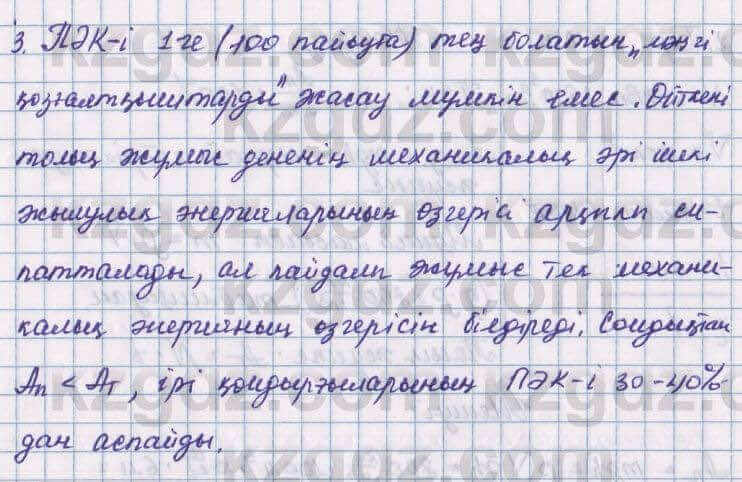 3. ПӘК-і 1-ге (100 пайызға) тең болатын „мәңгі
қозғалтқыштарды" жасау мүмкін емес. Өйткені
толық жұмыс дененің механикалық әрі ішкі
жылулық энергияларының өзгерісі арқылы си-
патталады, ал пайдалы жұмыс тек механи-
калық энергияның өзгерісін білдіреді. Сондықтан
Aп < Aт, ірі қондырғыларының ПӘК-і 30-40%-
дан аспайды.
kzgdz.com